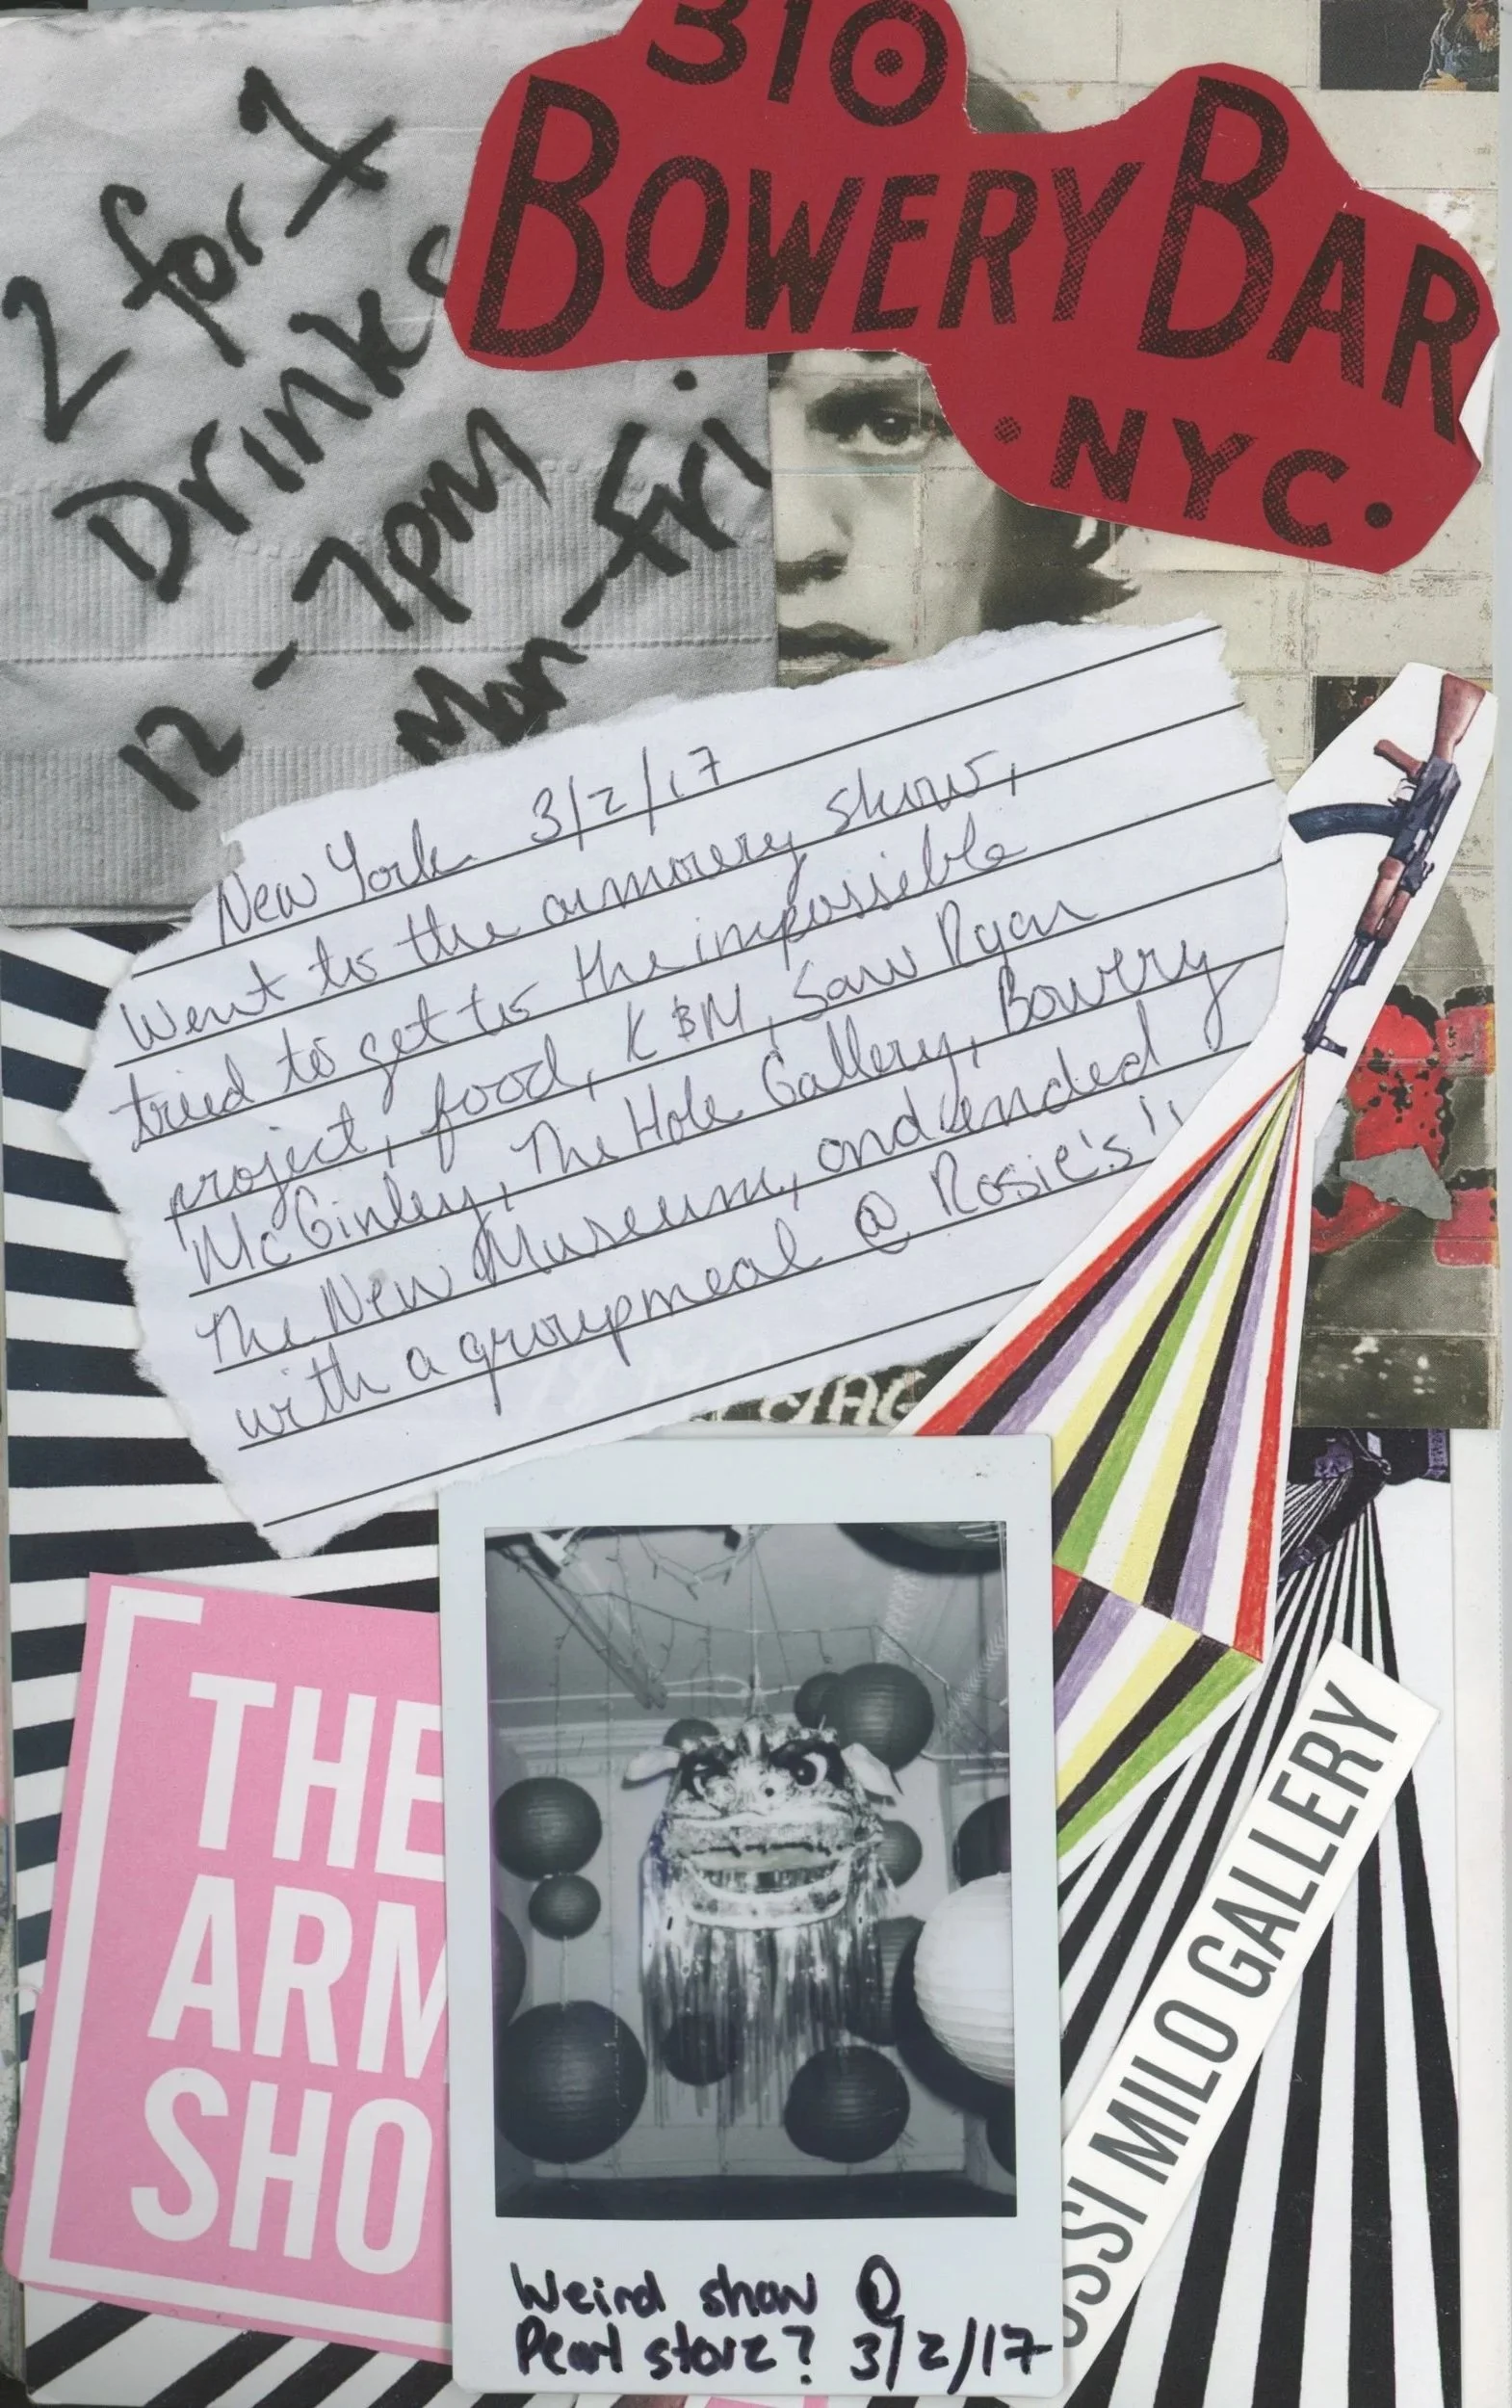 310
BOWERY BAR
• NYC •
2 for 1
Drinks
12 - 7pm
Mon - Fri.
New York 3/2/17
Went to the armorery show,
tried to get to the impossible
project, food, K&M, Saw Ryan
McGinley, The Hole Gallery, Bowery
The New Museum, and ended
with a groupmeal @ Rosie's!!
THE
ARM
SHO
OSSI MILO GALLERY
Weird show @
Pearl store? 3/2/17